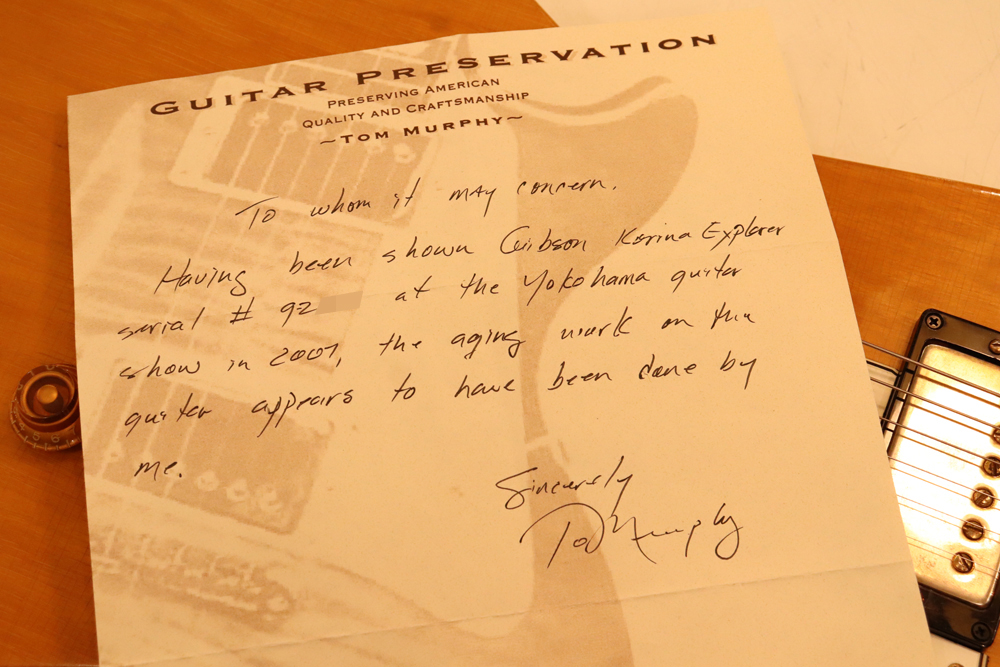 GUITAR PRESERVATION
PRESERVING AMERICAN
QUALITY AND CRAFTSMANSHIP
~TOM MURPHY~
To whom it may concern.
Having been shown Gibson Korina Explorer
serial # 92 at the Yokohama guitar
show in 2007, the aging work on this
guitar appears to have been done by
me.
Sincerely
Tom Murphy